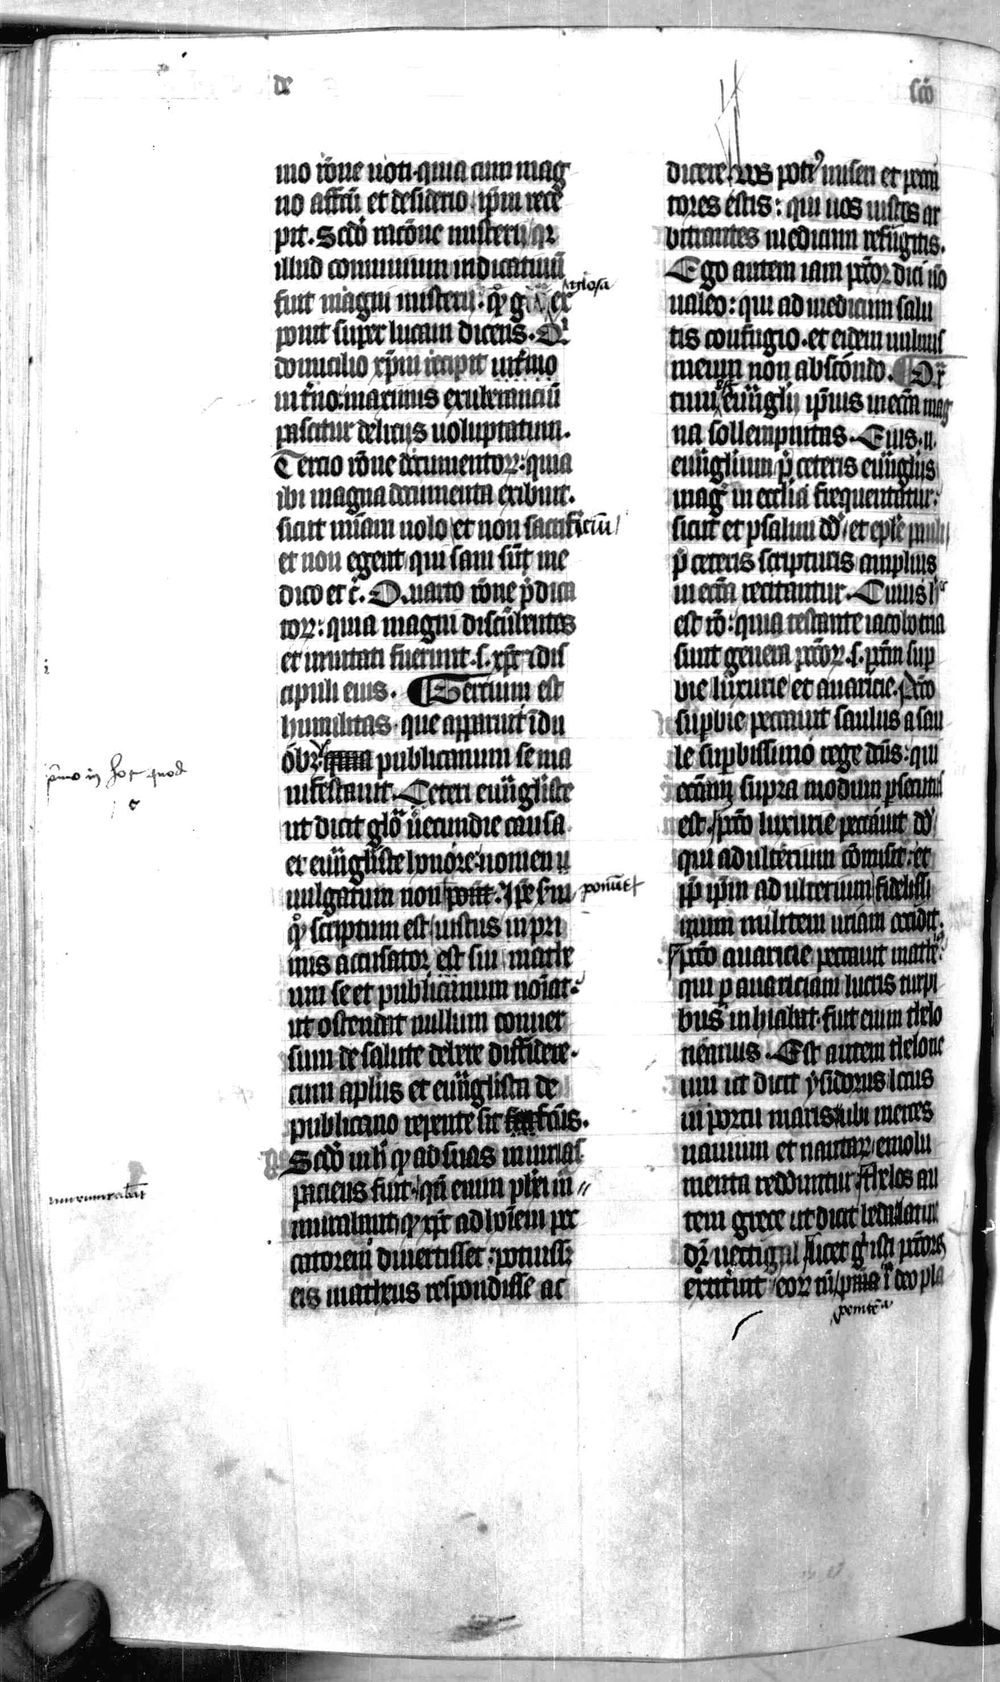 de
sco̅
mo ro̅ne uoti. quia cum mag
no affc̅u et desiderio ip̅m rece
pit. Scdo̅ racio̅ne misterij qr
illud conuiuium indicatiuu̅
fuit magni misterij: qd̅ gl̅ ex
glosa
ponit super lucam dicens. Qui
domicilio xp̅m recipit interno
interno. maximis exuberanciu̅
pascitur delicijs uoluptatum.
Tercio ro̅ne documentoꝝ. quia
ibi magna documenta exibuit.
sicut mi̅am uolo et non sacrificiu̅
et non egent qui sani su̅t me
dico et c̅. Quarto ro̅ne p̅dica
toꝝ: quia magni discu̅bentes
et inuitati fuerunt .s. xp̅c et dis
cipuli eius. Tercium est
humilitas. que apparuit i̅ du
ob̅ꝫ publicanum se ma
p̅mo in hoc quod
nifestauit. Ceteri eu̅ugliste
ut dicit glo̅ uerecundie causa
et eu̅ugliste honore nomen u
uulgatum non ponu̅t. Ip̅e s̅m
ponu̅t
qd̅ scriptum est iustus in pri
mis accusator est sui mathe
um se et publicanum no̅iat.
ut ostendat nullum conuer
sum de salute debere diffidere.
cum ap̅lus et eu̅uglista de
publicano repente sit fc̅us.
Scdo̅ in h̅ qd̅ ad suas iniurias
paciens fuit. qa̅ enim ph̅ri in̅
murabant
murabant qd̅ xp̅c ad ho̅iem pec
catorem diuertisset. potuisset
eis matheus respondisse ac
dicere. Vos poti9 miseri et pecca
tores estis: qui uos iustos ar
bitrantes medicum refugitis.
Ego autem iam pc̅cor dici no̅
ualeo: qui ad medicum salu
tis confugio. et eidem uulnus
meum non abscondo. Qr̅
tum est eu̅uglij ip̅ius in ecc̅a mag
na sollempnitas. Eius .n.
eu̅uglium p̅ ceteris eu̅uglijs
mag̅ in ecclia̅ frequentatur:
sicut et psalmi dd̅ et eple̅ pauli
p̅ ceteris scripturis amplius
in ecc̅a recitantur. Cuius h̅
est ro̅: quia testante iacobo tria
sunt genera pc̅coꝝ .s. pc̅m sup
bie luxurie et auaricie. Pc̅co
sup̅bie peccauit saulus a sau
le sup̅bissimo rege dc̅us: qui
ecc̅am supra modum p̅secutus
est. Pc̅co luxurie peccauit dd̅
qui adulterium co̅misit. et
pp̅ ip̅m adulterium fidelissi
mum militem uriam occidit.
pc̅co auaricie peccauit mathe9
qui p̅ auariciam lucris turpi
bus inhiabat. fuit enim thelo
nearius. Est autem thelone
um ut dicit ysidorus locus
in portu maris ubi merces
nauium et nautaꝝ emolu
menta redduntur. Thelos au
tem grece ut dicit beda latine
dr̅ uectigal. licet g̅ isti pc̅cores
extiterint eoꝝ tn̅ pnia̅ i̅ deo pla
penite̅a